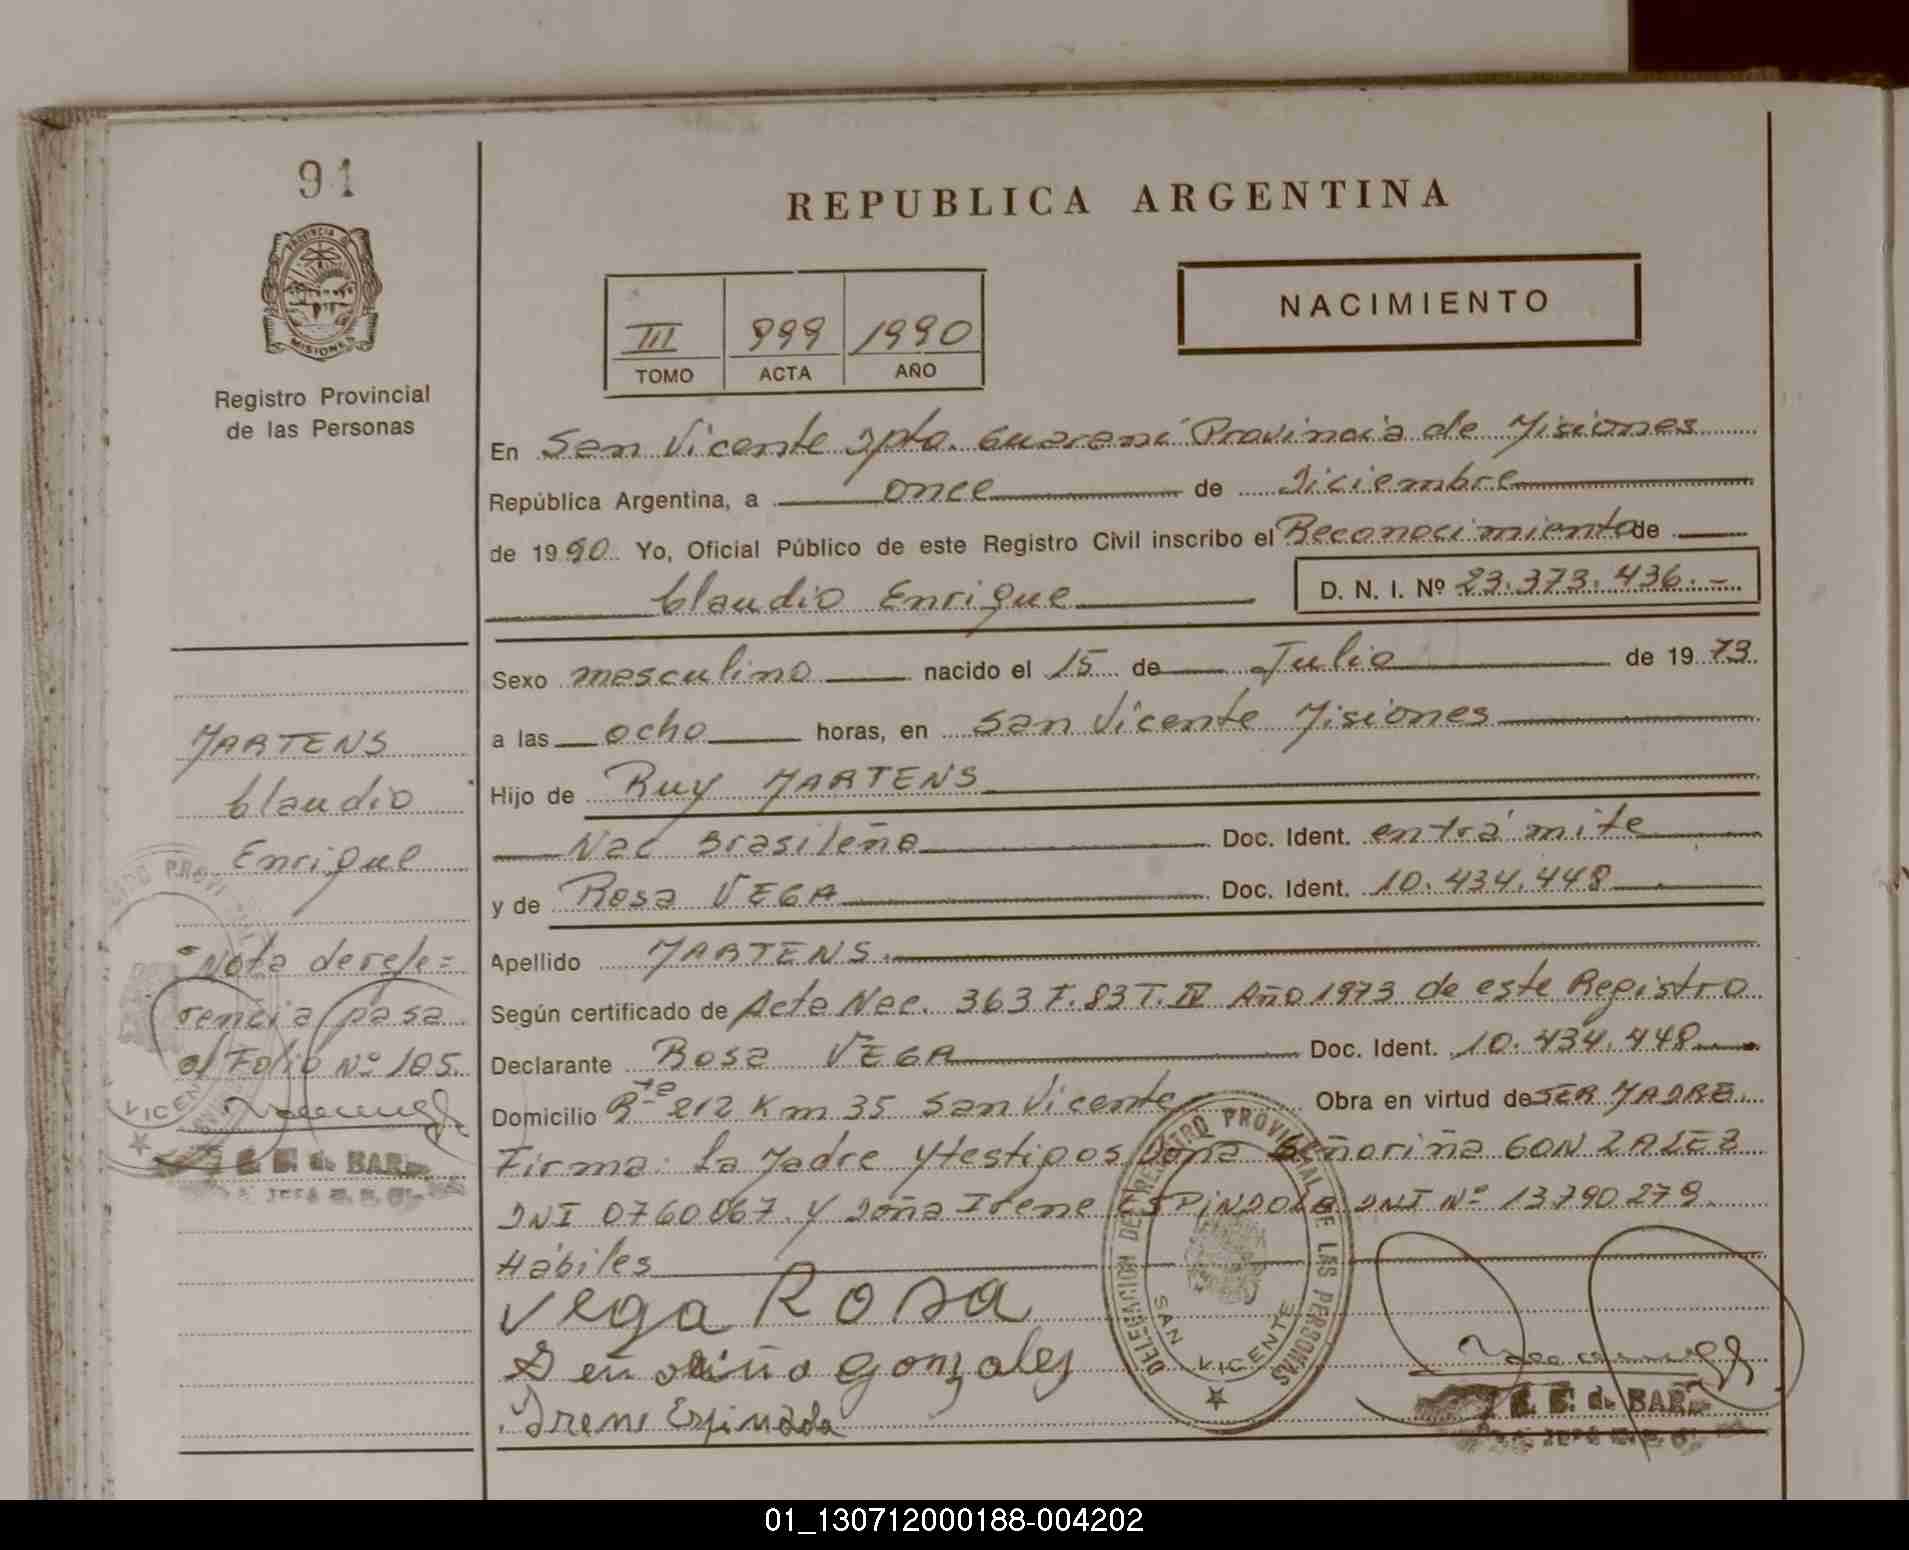 91
PROVINCIA D
MISIONES
Registro Provincial
de las Personas
REPUBLICA ARGENTINA
NACIMIENTO
III 999 1990
TOMO ACTA AÑO
En San Vicente Dpto. Guaraní Provincia de Misiones
República Argentina, a once de Diciembre
de 1990 Yo, Oficial Público de este Registro Civil inscribo el Reconocimiento de
Claudio Enrique D. N. I. Nº 23.373.436.-
Sexo masculino nacido el 15 de Julio de 1973
a las ocho horas, en San Vicente Misiones
Hijo de Ruy MARTENS
Nac Brasileña Doc. Ident. entrámite
y de Rosa VEGA Doc. Ident. 10.434.448
Apellido MARTENS.
Según certificado de Acta Nac. 363 F. 83 T. IV Año 1973 de este Registro
Declarante Rosa VEGA Doc. Ident. 10.434.448
Domicilio Rta 212 Km 35 San Vicente Obra en virtud de SER MADRE.
Firma: La Madre y testigos Doña Señoriña GONZALEZ
DNI 0760067. y Doña Irene ESPINDOLA DNI Nº 13.790.279.
Hábiles
Vega Rosa
Señoriña Gonzalez
Irene Espindola
DELEGACION DEL REGISTRO PROVINCIAL DE LAS PERSONAS
SAN VICENTE
E. E. de BAR
MARTENS
Claudio
Enrique
Nota de refe=
rencia pasa
al Folio Nº 105.
VICEN
E. E. de BAR
01_130712000188-004202